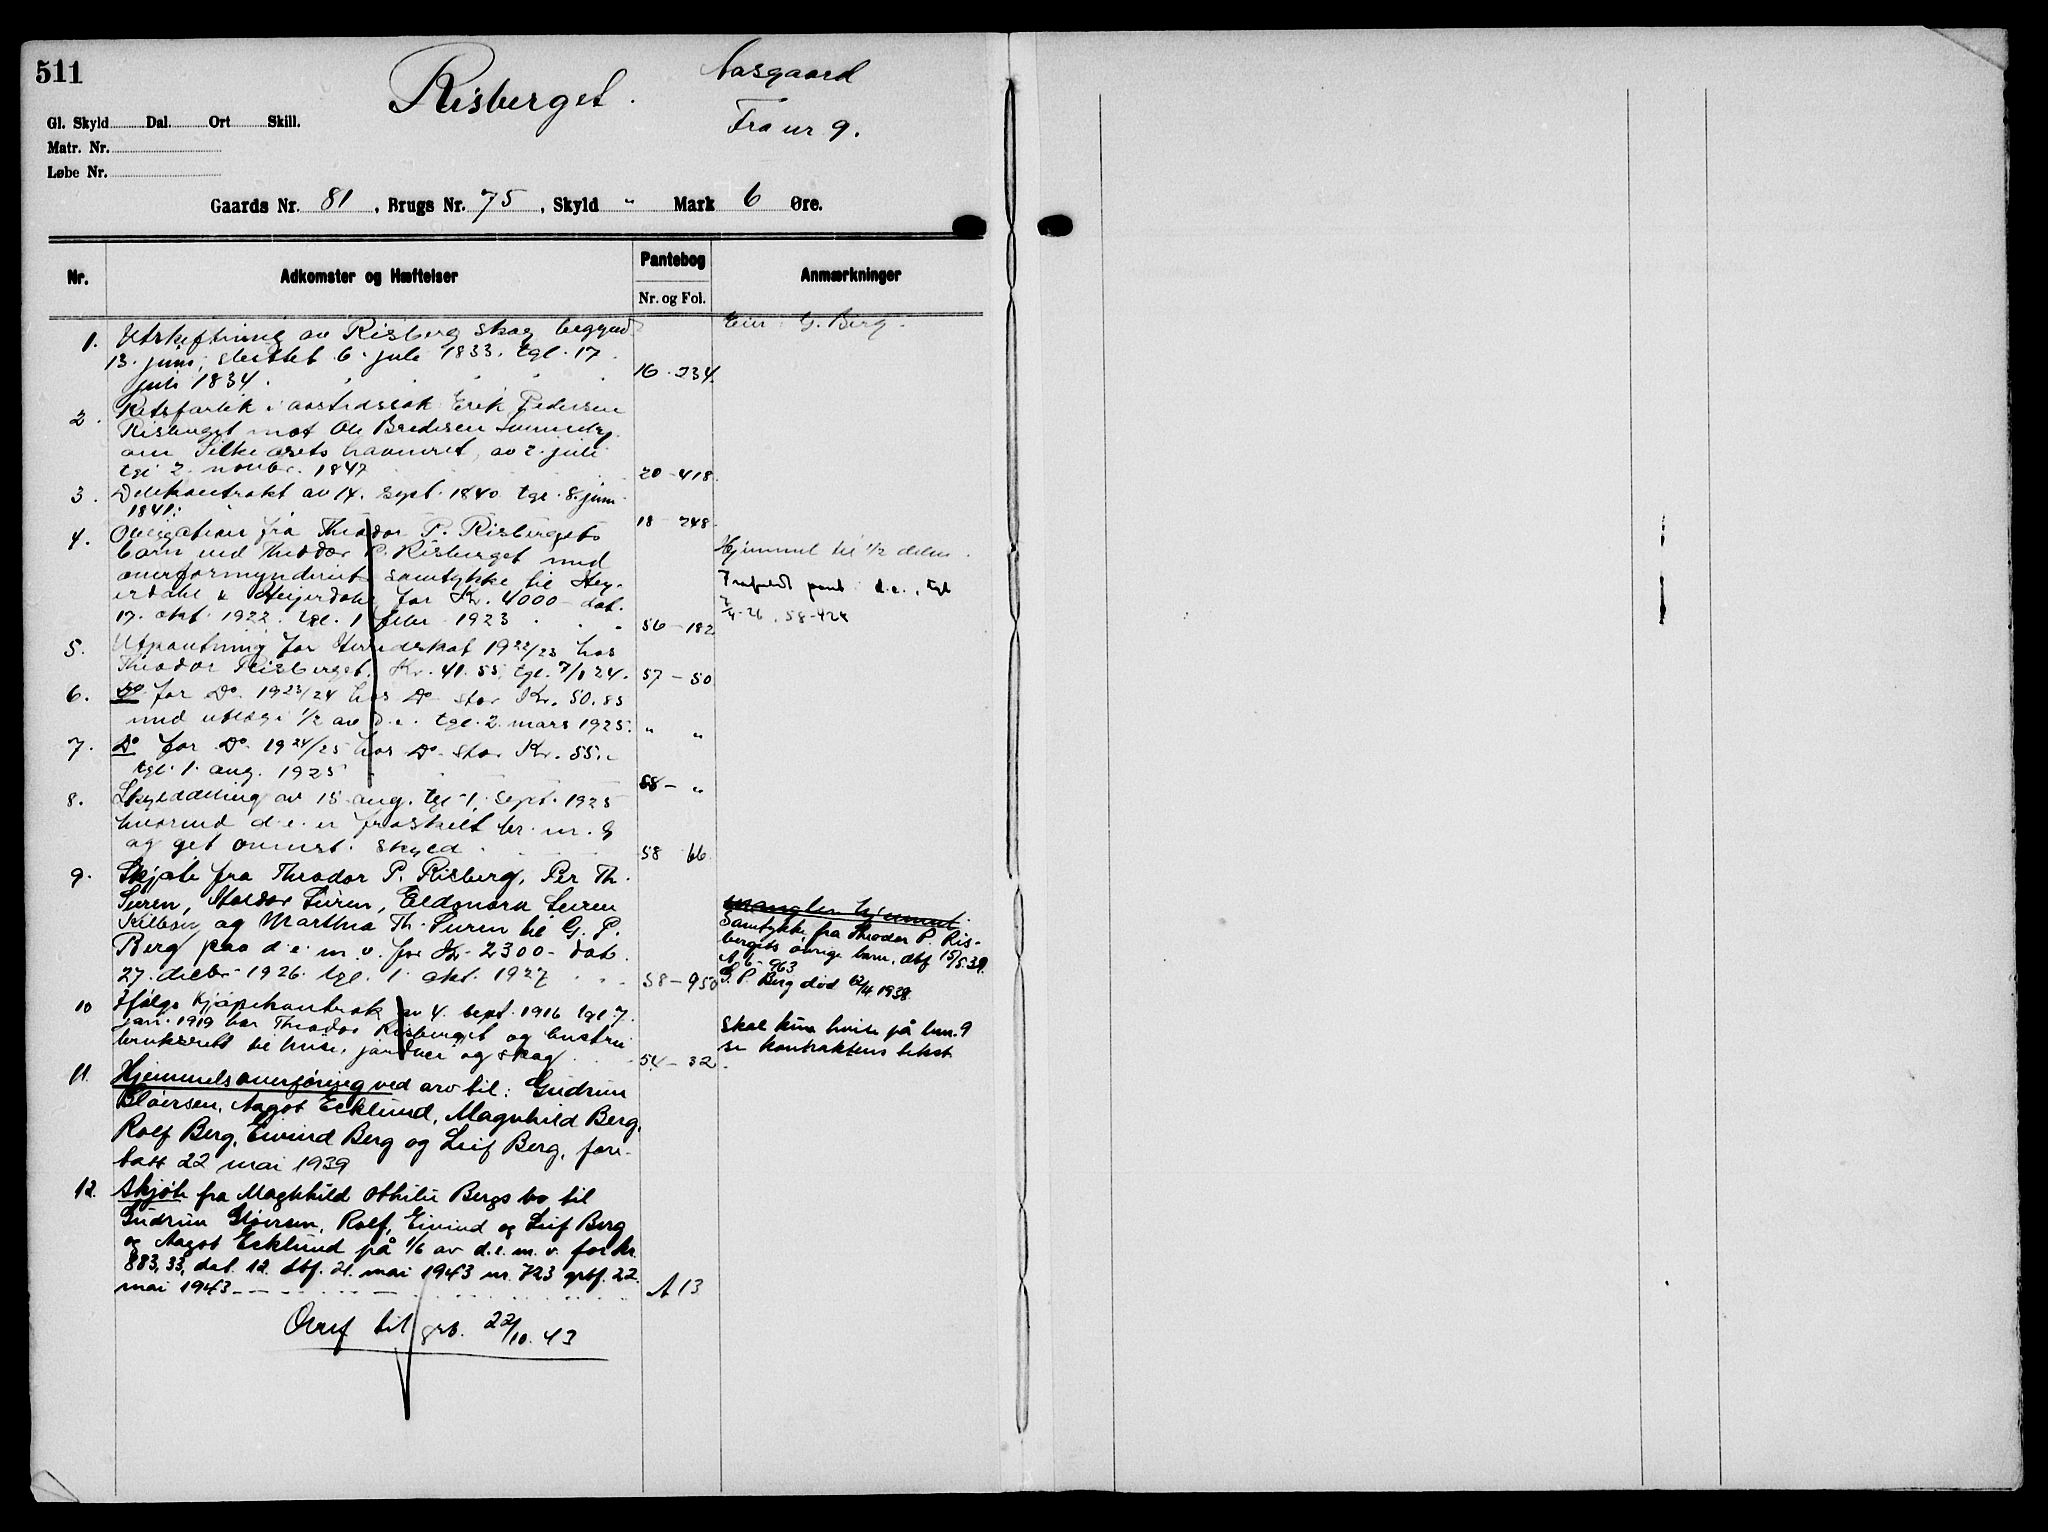 511
Risberget.
Aasgaard
Fra nr 9.
Gl. Skyld Dal. Ort Skill.
Matr. Nr.
Løbe Nr.
Gaards Nr. 81, Brugs Nr. 75, Skyld " Mark 6 Øre.
Nr. Adkomster og Hæftelser Pantebog Anmærkninger
Nr. og Fol.
Eier: G. Berg.
1. Utskiftning av Risberg skog begynd
13. juni, sluttet 6. juli 1833. tgl. 17
juli 1834. 16-234.
2. Retsforlik i aastedssak Erik Pedersen
Risberget mot Ole Bredesen
om havneret, av 2. juli
tgl 2. novbr. 1847 20-418.
3. Delekontrakt av 14. sept. 1840. tgl. 8. juni
1841. 18-248.
4. Obligation fra Theodor P. Risbergets
barn ved Theodor P. Risberget med
overformynderiets samtykke til Hey-
erdahl & Heyerdahl for Kr. 4000- dat.
17. okt. 1922. tgl. 1 febr. 1923 56-182
Hjemmel til 1/2 delen.
Frafaldt pant i d.e., tgl
7/4-26. 58-424
5. Utpantning for Herredskat 1922/23 hos
Theodor Risberget, Kr. 41.55, tgl. 7/1 24. 57-50
6. Do for Do. 1923/24 hos Do stor Kr. 50.85
med utlæg i 1/2 av d.e. tgl. 2. mars 1925. " "
7. Do for Do. 1924/25 hos Do. stor Kr. 55.-
tgl. 1. aug. 1925 58- "
8. Skylddeling av 15. aug. tgl 1. sept. 1925
hvorved d.e. er fraskilt br. nr. 9
og get ovennt. skyld 58 66
9. Skjøte fra Theodor P. Risberg, Per Th.
Suren, Suren, Suren
og Marthea Th. Suren til G. P.
Berg paa d.e. m.v. for Kr. 2300- dat.
27. decbr. 1926. tgl. 1. okt. 1927 58-950
mangler hjemmel.
Samtykke fra Theodor P. Ris-
bergets øvrige barn, dbf 15/5.39.
A 6-963
G. P. Berg død 12/4 1938.
10 Ifølge Kjøpekontrakt av 4. sept. 1916 tgl 7.
jan. 1919 har Theodor Risberget og hustru
bruksrett til huse, jordvei og skog. 54-32.
Skal kun hvile på bnr. 9
se kontraktens tekst.
11. Hjemmelsoverføring ved arv til: Gudrun
Gløersen, Aagot Ecklund, Magnhild Berg,
Rolf Berg, Eivind Berg og Leif Berg, fore-
tatt 22 mai 1939
12. Skjøte fra Magnhild Othilie Bergs bo til
Gudrun Gløersen, Rolf, Eivind og Leif Berg
og Aagot Ecklund på 1/6 av d.e. m.v. for kr.
883,33, dat. 12. dbf. 21. mai 1943 nr. 723 grbf. 22.
mai 1943 A 13
Overf til grb. 22/10.43